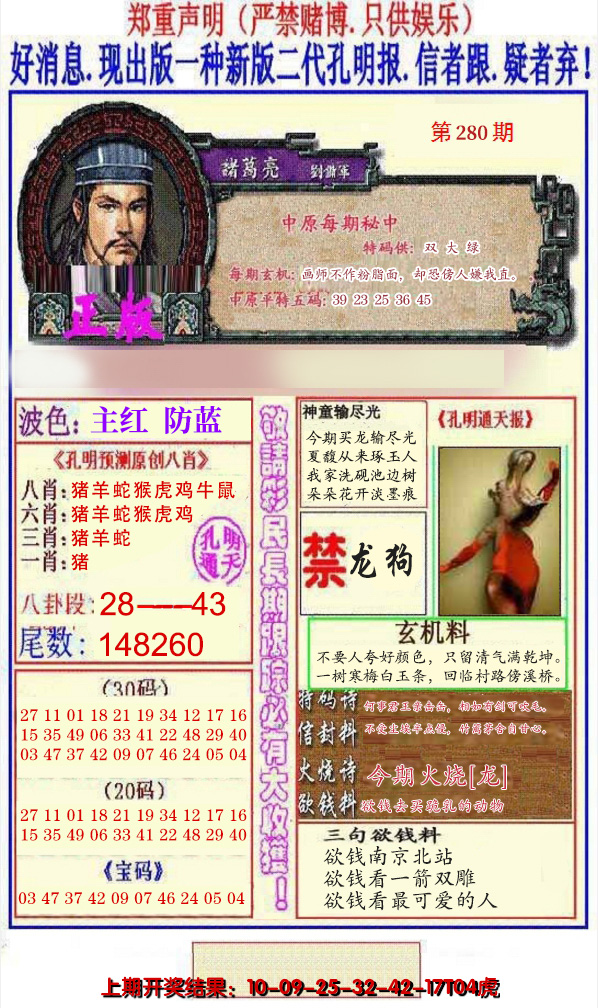 郑重声明（严禁赌博.只供娱乐）
好消息.现出版一种新版二代孔明报.信者跟.疑者弃!
第280期
諸葛亮 劉備軍
中原每期秘中
特码供：双 大 绿
每期玄机：画师不作粉脂面，却恐傍人嫌我直。
中原平特五码：39 23 25 36 45
正版
波色：主红 防蓝
《孔明预测原创八肖》
八肖：猪羊蛇猴虎鸡牛鼠
六肖：猪羊蛇猴虎鸡
三肖：猪羊蛇
一肖：猪
孔明
通天
八卦段：28——43
尾数：148260
（30码）
27 11 01 18 21 19 34 12 17 16
15 35 49 06 33 41 22 48 29 40
03 47 37 42 09 07 46 24 05 04
（20码）
27 11 01 18 21 19 34 12 17 16
15 35 49 06 33 41 22 48 29 40
《宝码》
03 47 37 42 09 07 46 24 05 04
敬請彩民長期跟踪必有大收獲！
神童输尽光
今期买龙输尽光
夏馥从来琢玉人
我家洗砚池边树
朵朵花开淡墨痕
《孔明通天报》
禁 龙狗
玄机料
不要人夸好颜色，只留清气满乾坤。
一树寒梅白玉条，回临村路傍溪桥。
特码诗
何事君王亲击击，相如有剑可吹毛。
信封料
不受尘埃半点侵，竹篱茅舍自甘心。
火烧诗 今期火烧[龙]
欲钱料 欲钱去买驼乳的动物
三句欲钱料
欲钱南京北站
欲钱看一箭双雕
欲钱看最可爱的人
上期开奖结果：10-09-25-32-42-17T04虎